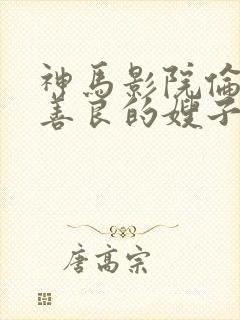 神馬影院倫
善良的嫂子
唐高宗